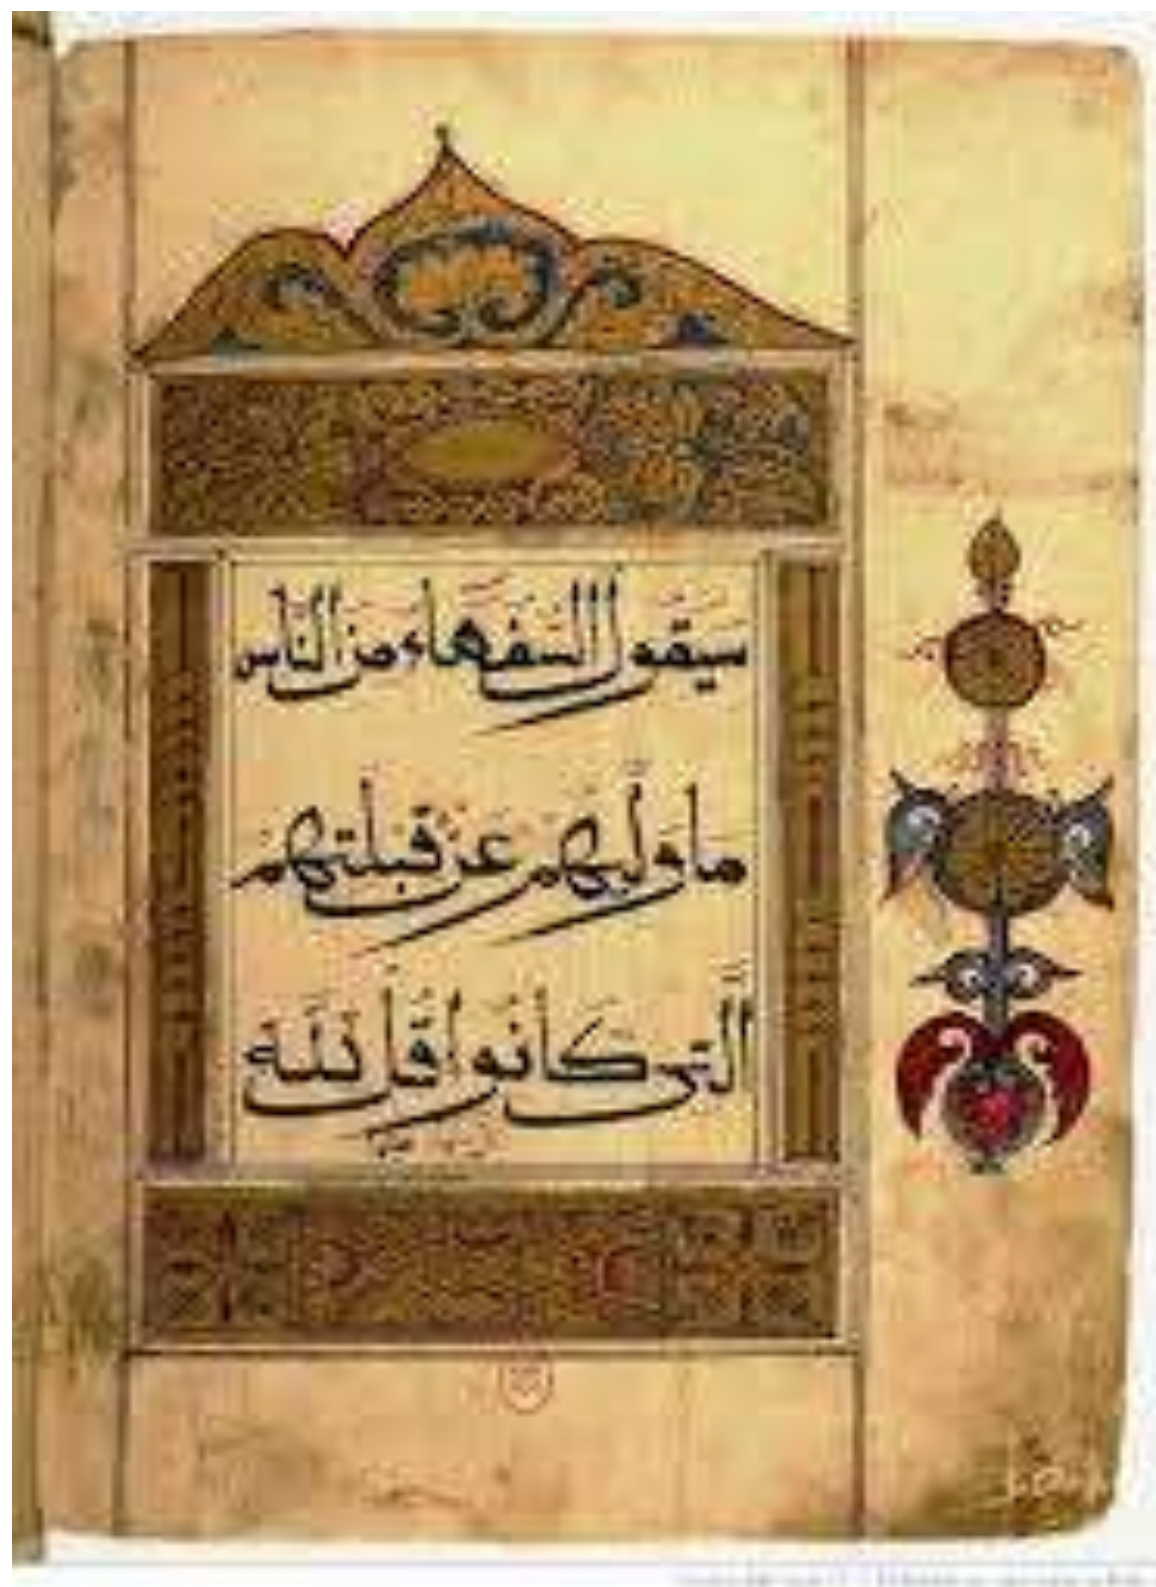 سيقول السفهاء من الناس
ما وليهم عن قبلتهم
التى كانوا قل لله